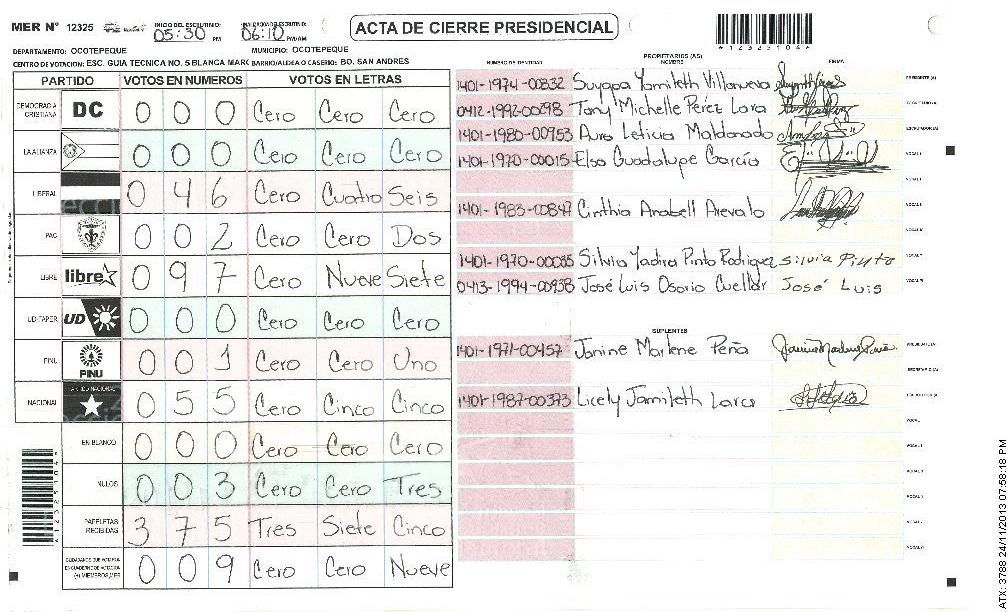 MER Nº 12325 INICIO DEL ESCRUTINIO: 05:30 PM FINALIZACION DEL ESCRUTINIO: 06:10 PM/AM
ACTA DE CIERRE PRESIDENCIAL
DEPARTAMENTO: OCOTEPEQUE MUNICIPIO: OCOTEPEQUE
CENTRO DE VOTACION: ESC. GUIA TECNICA NO. 5 BLANCA MARC BARRIO/ALDEA O CASERIO: BO. SAN ANDRES
PARTIDO VOTOS EN NUMEROS VOTOS EN LETRAS
DEMOCRACIA CRISTIANA DC 0 0 0 Cero Cero Cero
LA ALIANZA 0 0 0 Cero Cero Cero
LIBERAL 0 4 6 Cero Cuatro Seis
PAC 0 0 2 Cero Cero Dos
LIBRE libre 0 9 7 Cero Nueve Siete
UD-FAPER UD 0 0 0 Cero Cero Cero
PINU PINU 0 0 1 Cero Cero Uno
NACIONAL 0 5 5 Cero Cinco Cinco
EN BLANCO 0 0 0 Cero Cero Cero
NULOS 0 0 3 Cero Cero Tres
PAPELETAS RECIBIDAS 3 7 5 Tres Siete Cinco
0 0 9 Cero Cero Nueve
PROPIETARIOS (AS)
NUMERO DE IDENTIDAD NOMBRE FIRMA
1401-1974-00832 Suyapa Yamileth Villanueva
0412-1992-00298 Tany Michelle Pérez Lara
1401-1980-00953 Aura Leticia Maldonado
1401-1970-00015 Elsa Guadalupe García
1401-1983-00847 Cinthia Anabell Arevalo
1401-1970-00085 Silvia Yadira Pinto Rodriguez silvia Pinto
0413-1994-00938 José Luis Osorio Cuellar José Luis
SUPLENTES
1401-1971-00457 Janine Marlene Peña
1401-1987-00373 Licely Jamileth Lara
ATX: 3788 24/11/2013 07:58:18 PM